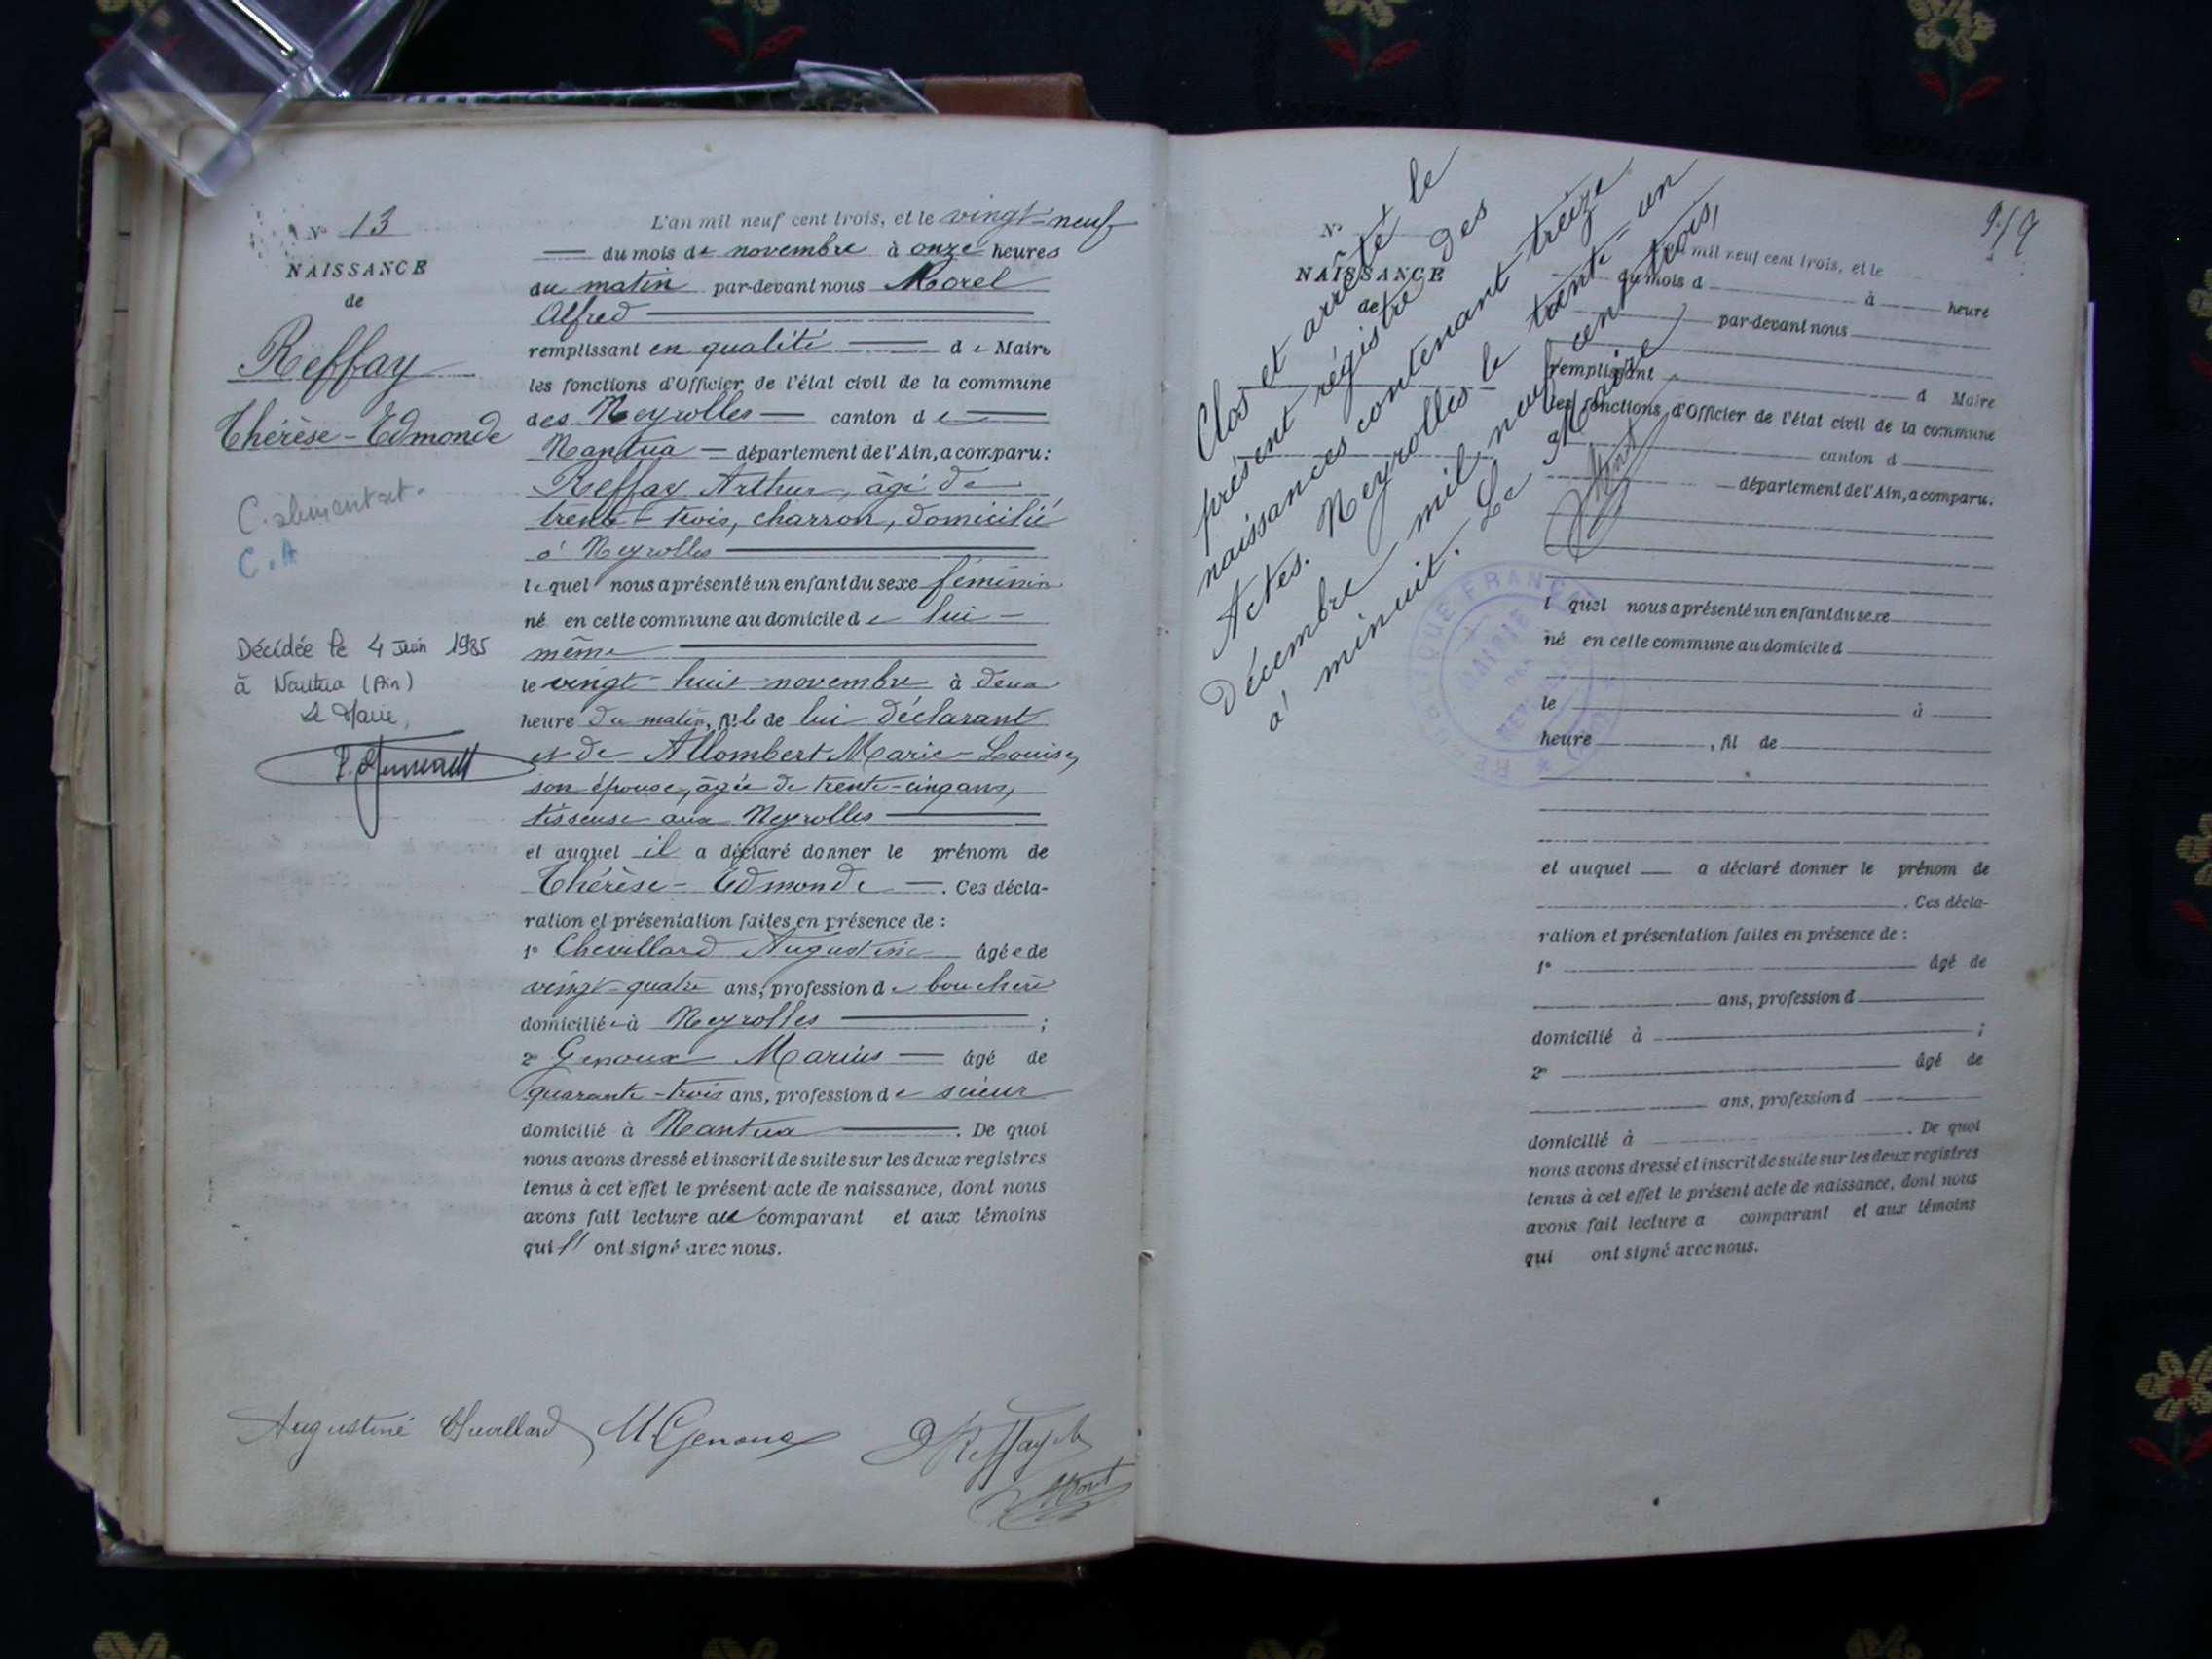 N° 13
NAISSANCE
de
Reffay
Thérèse-Edmonde
C. aliment
C. A
Décédée le 4 Juin 1985
à Nantua (Ain)
Le Maire,
L'an mil neuf cent trois, et le vingt-neuf
du mois de novembre à onze heures
du matin par-devant nous Morel
Alfred
remplissant en qualité de Maire
les fonctions d'Officier de l'état civil de la commune
des Neyrolles canton de
Nantua département de l'Ain, a comparu:
Reffay Arthur, âgé de
trente-trois, charron, domicilié
à Neyrolles
lequel nous a présenté un enfant du sexe féminin
né en cette commune au domicile de lui-
même
le vingt-huit novembre à deux
heure du matin, fil de lui déclarant
et de Allombert Marie-Louise,
son épouse, âgée de trente-cinq ans,
tisseuse aux Neyrolles
et auquel il a déclaré donner le prénom de
Thérèse-Edmonde. Ces décla-
ration et présentation faites en présence de :
1° Chevillard Augustine âgée de
vingt-quatre ans, profession de bouchère
domiciliée à Neyrolles ;
2° Genoux Marius âgé de
quarante-trois ans, profession de scieur
domicilié à Nantua. De quoi
nous avons dressé et inscrit de suite sur les deux registres
tenus à cet effet le présent acte de naissance, dont nous
avons fait lecture au comparant et aux témoins
qui l' ont signé avec nous.
Augustine Chevillard M. Genoux Reffay
9/9
Clos et arrêté le
présent registre des
naissances contenant treize
Actes. Neyrolles le trente-un
Décembre mil neuf cent trois,
à minuit. Le Maire
N°
NAISSANCE
de
mil neuf cent trois, et le
du mois d à heure
par-devant nous
remplissant d Maire
les fonctions d'Officier de l'état civil de la commune
d canton d
département de l'Ain, a comparu:
l quel nous a présenté un enfant du sexe
né en cette commune au domicile d
le à
heure , fil de
et auquel a déclaré donner le prénom de
. Ces décla-
ration et présentation faites en présence de :
1° âgé de
ans, profession d
domicilié à ;
2° âgé de
ans, profession d
domicilié à . De quoi
nous avons dressé et inscrit de suite sur les deux registres
tenus à cet effet le présent acte de naissance, dont nous
avons fait lecture a comparant et aux témoins
qui ont signé avec nous.